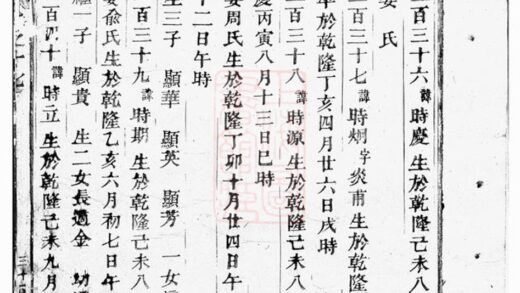 一百三十六 諱時慶生於乾隆己未八
氏
一百三十七 諱時炯字炎甫生於乾隆
於乾隆丁亥四月廿六日戌時
一百三十八 諱時源生於乾隆己未八
慶丙寅八月十三日巳時
周氏生於乾隆丁卯十月廿四日午
十二日午時
生三子 顯華 顯英 顯芳 一女
一百三十九 諱時期生於乾隆己未八
俞氏生於乾隆乙亥六月初七日午
一子 顯貴 生二女長適金
百四十 諱時立生於乾隆己未九月